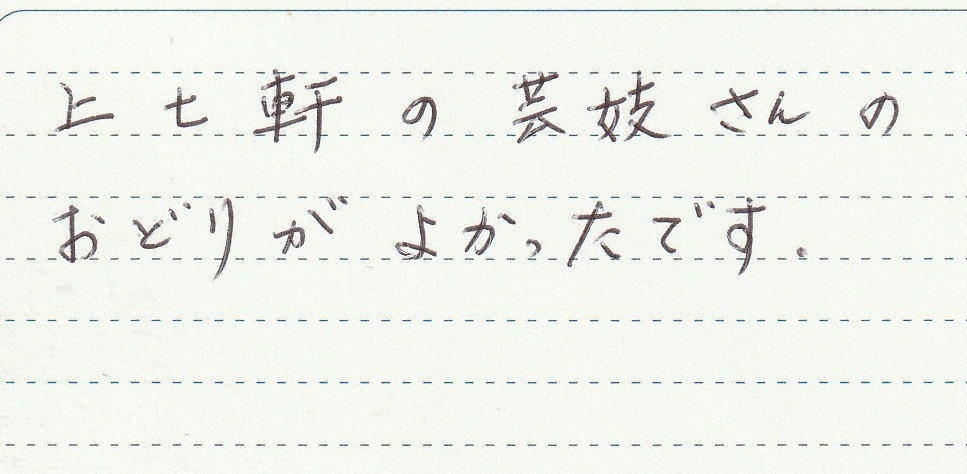 上七軒の芸妓さんの
おどりがよかったです.